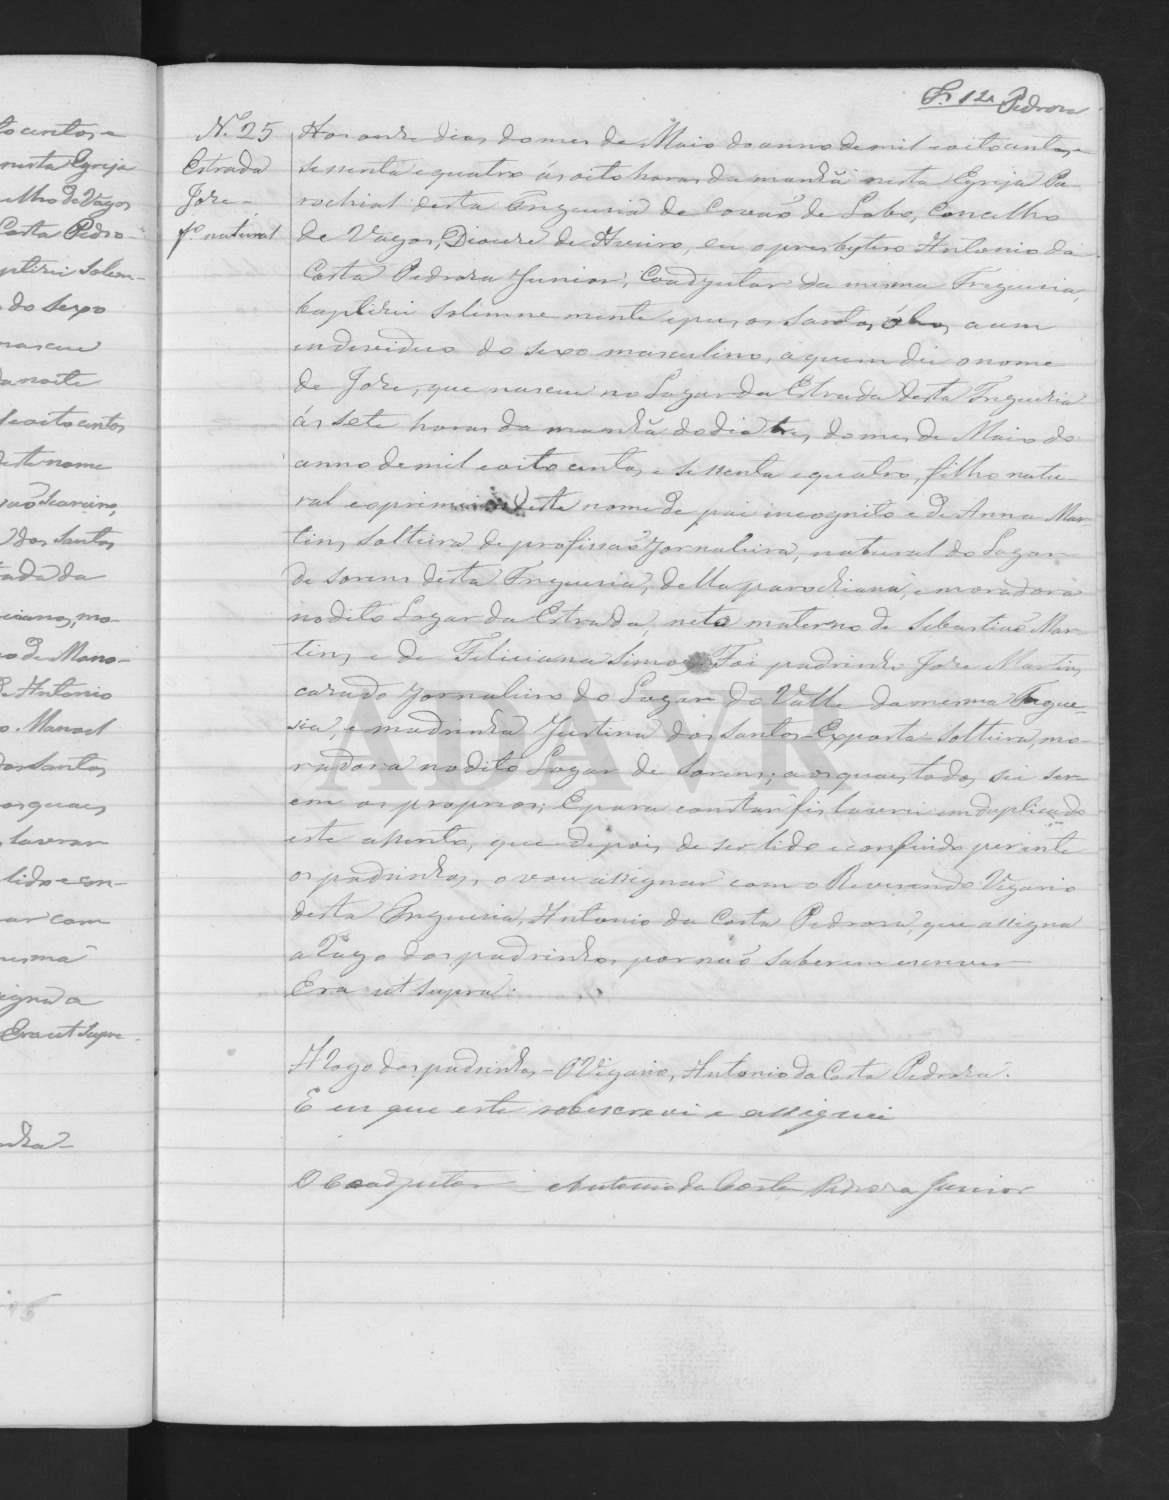 F. 12 Pedroza
N.º 25
Estrada
Joze -
f.º natural
Aos onze dias do mes de Maio do anno de mil e oito centos e
sessenta e quatro ás oito horas da manhã nesta Egreja Pa-
rochial desta Freguesia de Covaõ do Lobo, Concelho
de Vagos, Diocese de Aveiro, eu o presbytero Antonio da
Costa Pedroza Junior, Coadjutor da mesma Freguesia,
baptizei solemnemente e pus os santos óleos a um
individuo do sexo masculino, a quem dei o nome
de Joze, que nasceu no Lugar da Estrada desta Freguesia
ás sete horas da manhã do dia tres do mes de Maio do
anno de mil e oito centos e sessenta e quatro, filho natu-
ral e o primeiro deste nome de pai incognito e de Anna Mar-
tins, solteira de profissaõ Jornaleira, natural do Lugar
de Sorens desta Freguesia, della parochiana, e moradora
no dito Lugar da Estrada, neto materno de Sebastiaõ Mar-
tins, e de Feliciana Simoes. Foi padrinho Joze Martins,
cazado Jornaleiro do Lugar do Valle da mesma Fregue-
sia, e madrinha Justina dos Santos - Exposta - Solteira, mo-
radora no dito Lugar de Sorens; aos quaes todos sei ser-
em os proprios; E para constar fis lavrar em duplicado
este assento, que depois de ser lido e conferido perante
os padrinhos, o vou assignar com o Reverendo Vigario
desta Freguesia, Antonio da Costa Pedroza, que assigna
a Rogo dos padrinhos por naõ saberem escrever
Era ut supra.
A Rogo dos padrinhos - O Vigario, Antonio da Costa Pedroza.
E eu que este sobescrevi e assignei
O Coadjutor Antonio da Costa Pedroza Junior
ADAVR
to centos e
nesta Egreja
elho de Vagos
Costa Pedro-
ptizei solem-
do sexo
nasceu
da noite
e oito centos
deste nome
dos Santos
ciana, mo-
de Antonio
o. Manoel
dos Santos
os quaes
lavrar
lido e con-
ar com
mesma
igna a
Era ut supra.